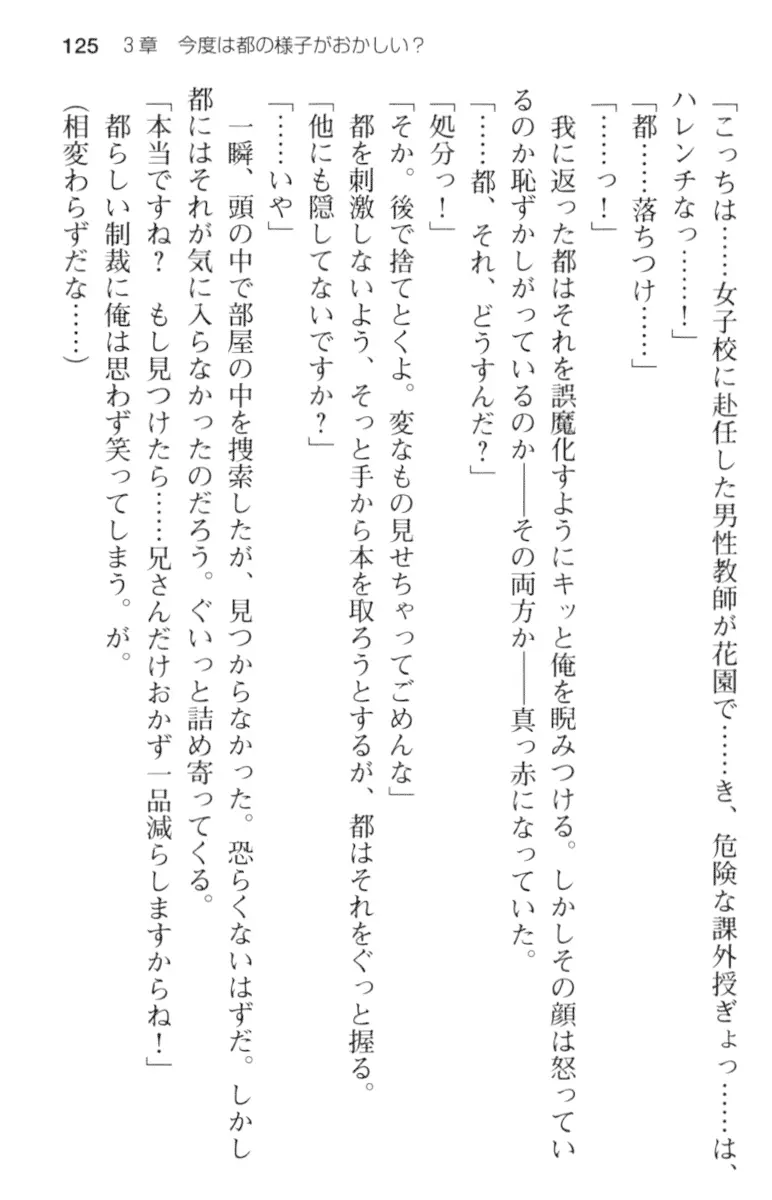 125　3章　今度は都の様子がおかしい？
「こっちは……女子校に赴任した男性教師が花園で……き、危険な課外授ぎょっ……は、
ハレンチなっ……！」
「都……落ちつけ……」
「……っ！」
　我に返った都はそれを誤魔化すようにキッと俺を睨みつける。しかしその顔は怒ってい
るのか恥ずかしがっているのか――その両方か――真っ赤になっていた。
「……都、それ、どうすんだ？」
「処分っ！」
「そか。後で捨てとくよ。変なもの見せちゃってごめんな」
　都を刺激しないよう、そっと手から本を取ろうとするが、都はそれをぐっと握る。
「他にも隠してないですか？」
「……いや」
　一瞬、頭の中で部屋の中を捜索したが、見つからなかった。恐らくないはずだ。しかし
都にはそれが気に入らなかったのだろう。ぐいっと詰め寄ってくる。
「本当ですね？　もし見つけたら……兄さんだけおかず一品減らしますからね！」
　都らしい制裁に俺は思わず笑ってしまう。が。
（相変わらずだな……）